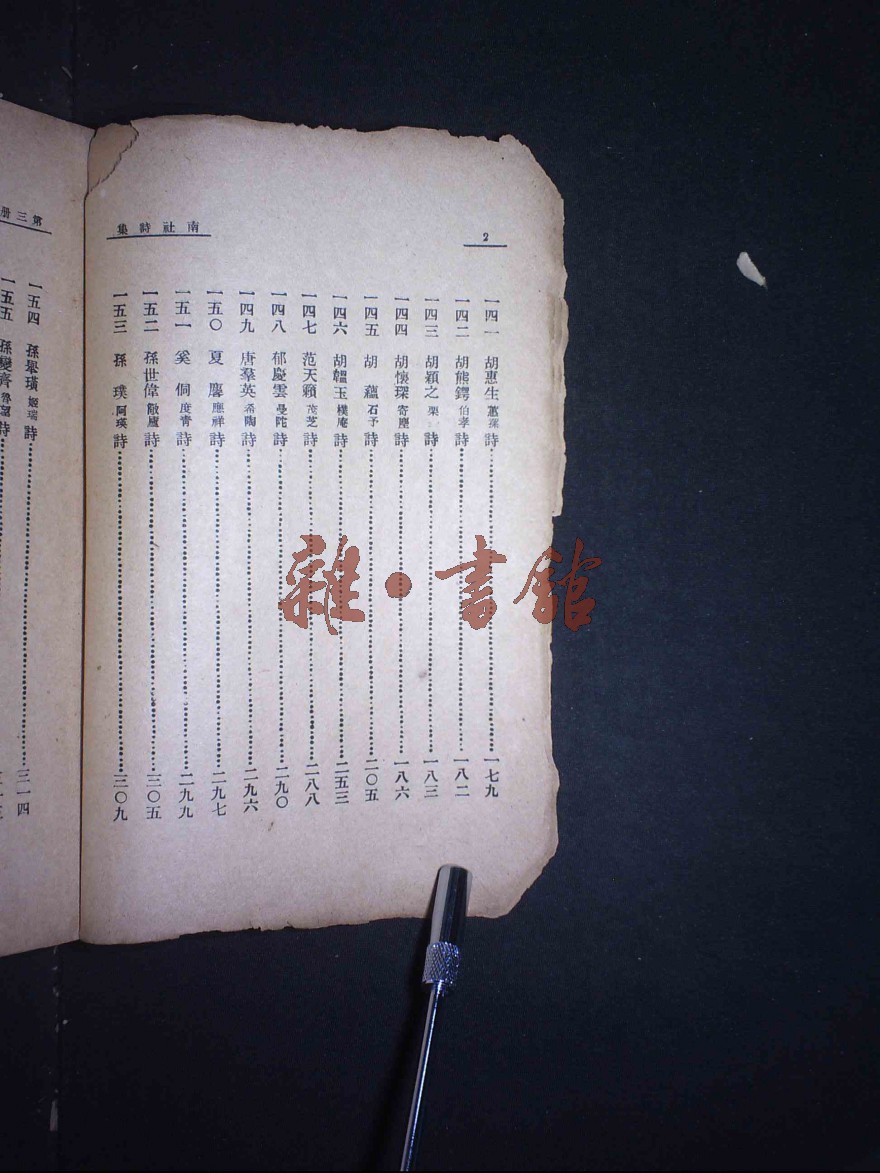 2
南社詩集
一四一 胡惠生 蕙蓀 詩 一七九
一四二 胡熊鍔 伯孝 詩 一八二
一四三 胡穎之 栗 詩 一八三
一四四 胡懷琛 寄塵 詩 一八六
一四五 胡蘊 石予 詩 二〇五
一四六 胡韞玉 樸庵 詩 二五三
一四七 范天籟 茂芝 詩 二八八
一四八 郁慶雲 曼陀 詩 二九〇
一四九 唐羣英 希陶 詩 二九六
一五〇 夏麐 應祥 詩 二九七
一五一 奚侗 度青 詩 二九九
一五二 孫世偉 敵廬 詩 三〇五
一五三 孫璞 阿瑛 詩 三〇九
第三册
一五四 孫舉璜 姬瑞 詩 三一四
一五五 孫變齊 魯望 詩
雜·書館